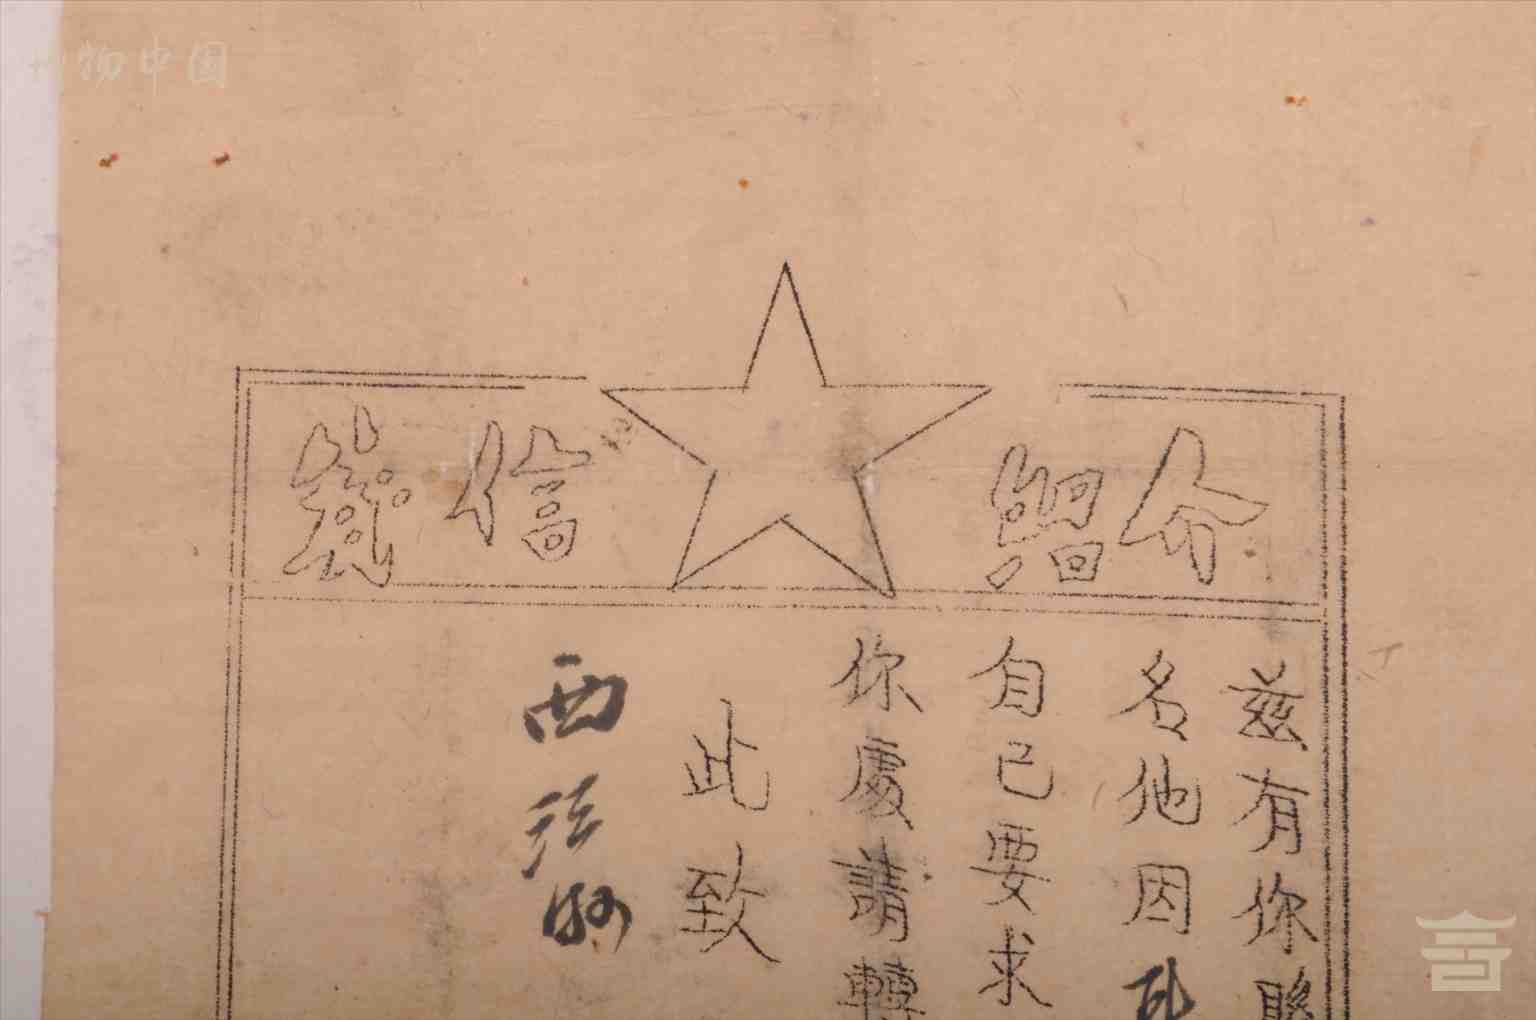 物中国
介紹信箋
兹有你縣
名他因
自己要求
你處請轉
此致
西江縣